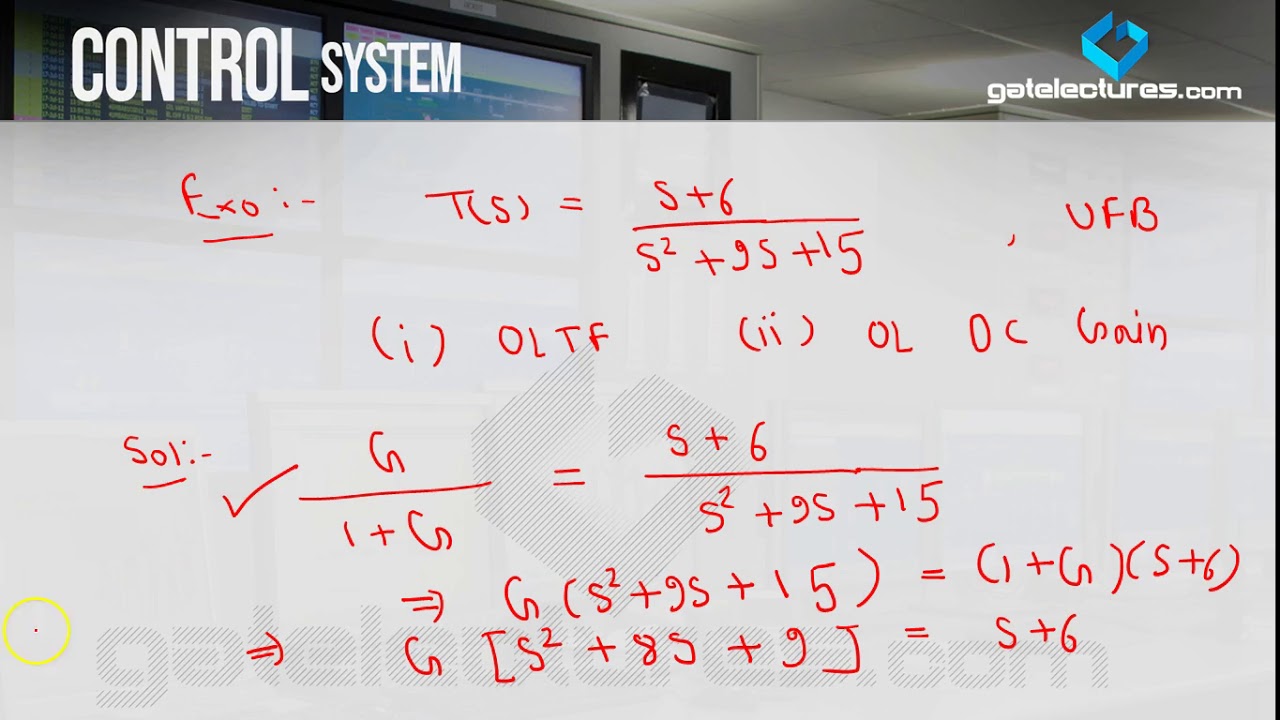 CONTROL SYSTEM
gatelectures.com
Exo:- T(s) = s+6 / s² +9s+15 , UFB
(i) OLTF (ii) OL DC Gain
Sol:- ✓ G / 1+G = s+6 / s² +9s +15
⇒ G(s²+9s+15) = (1+G)(s+6)
⇒ G [s² + 8s + 9] = s+6
gatelectures.com